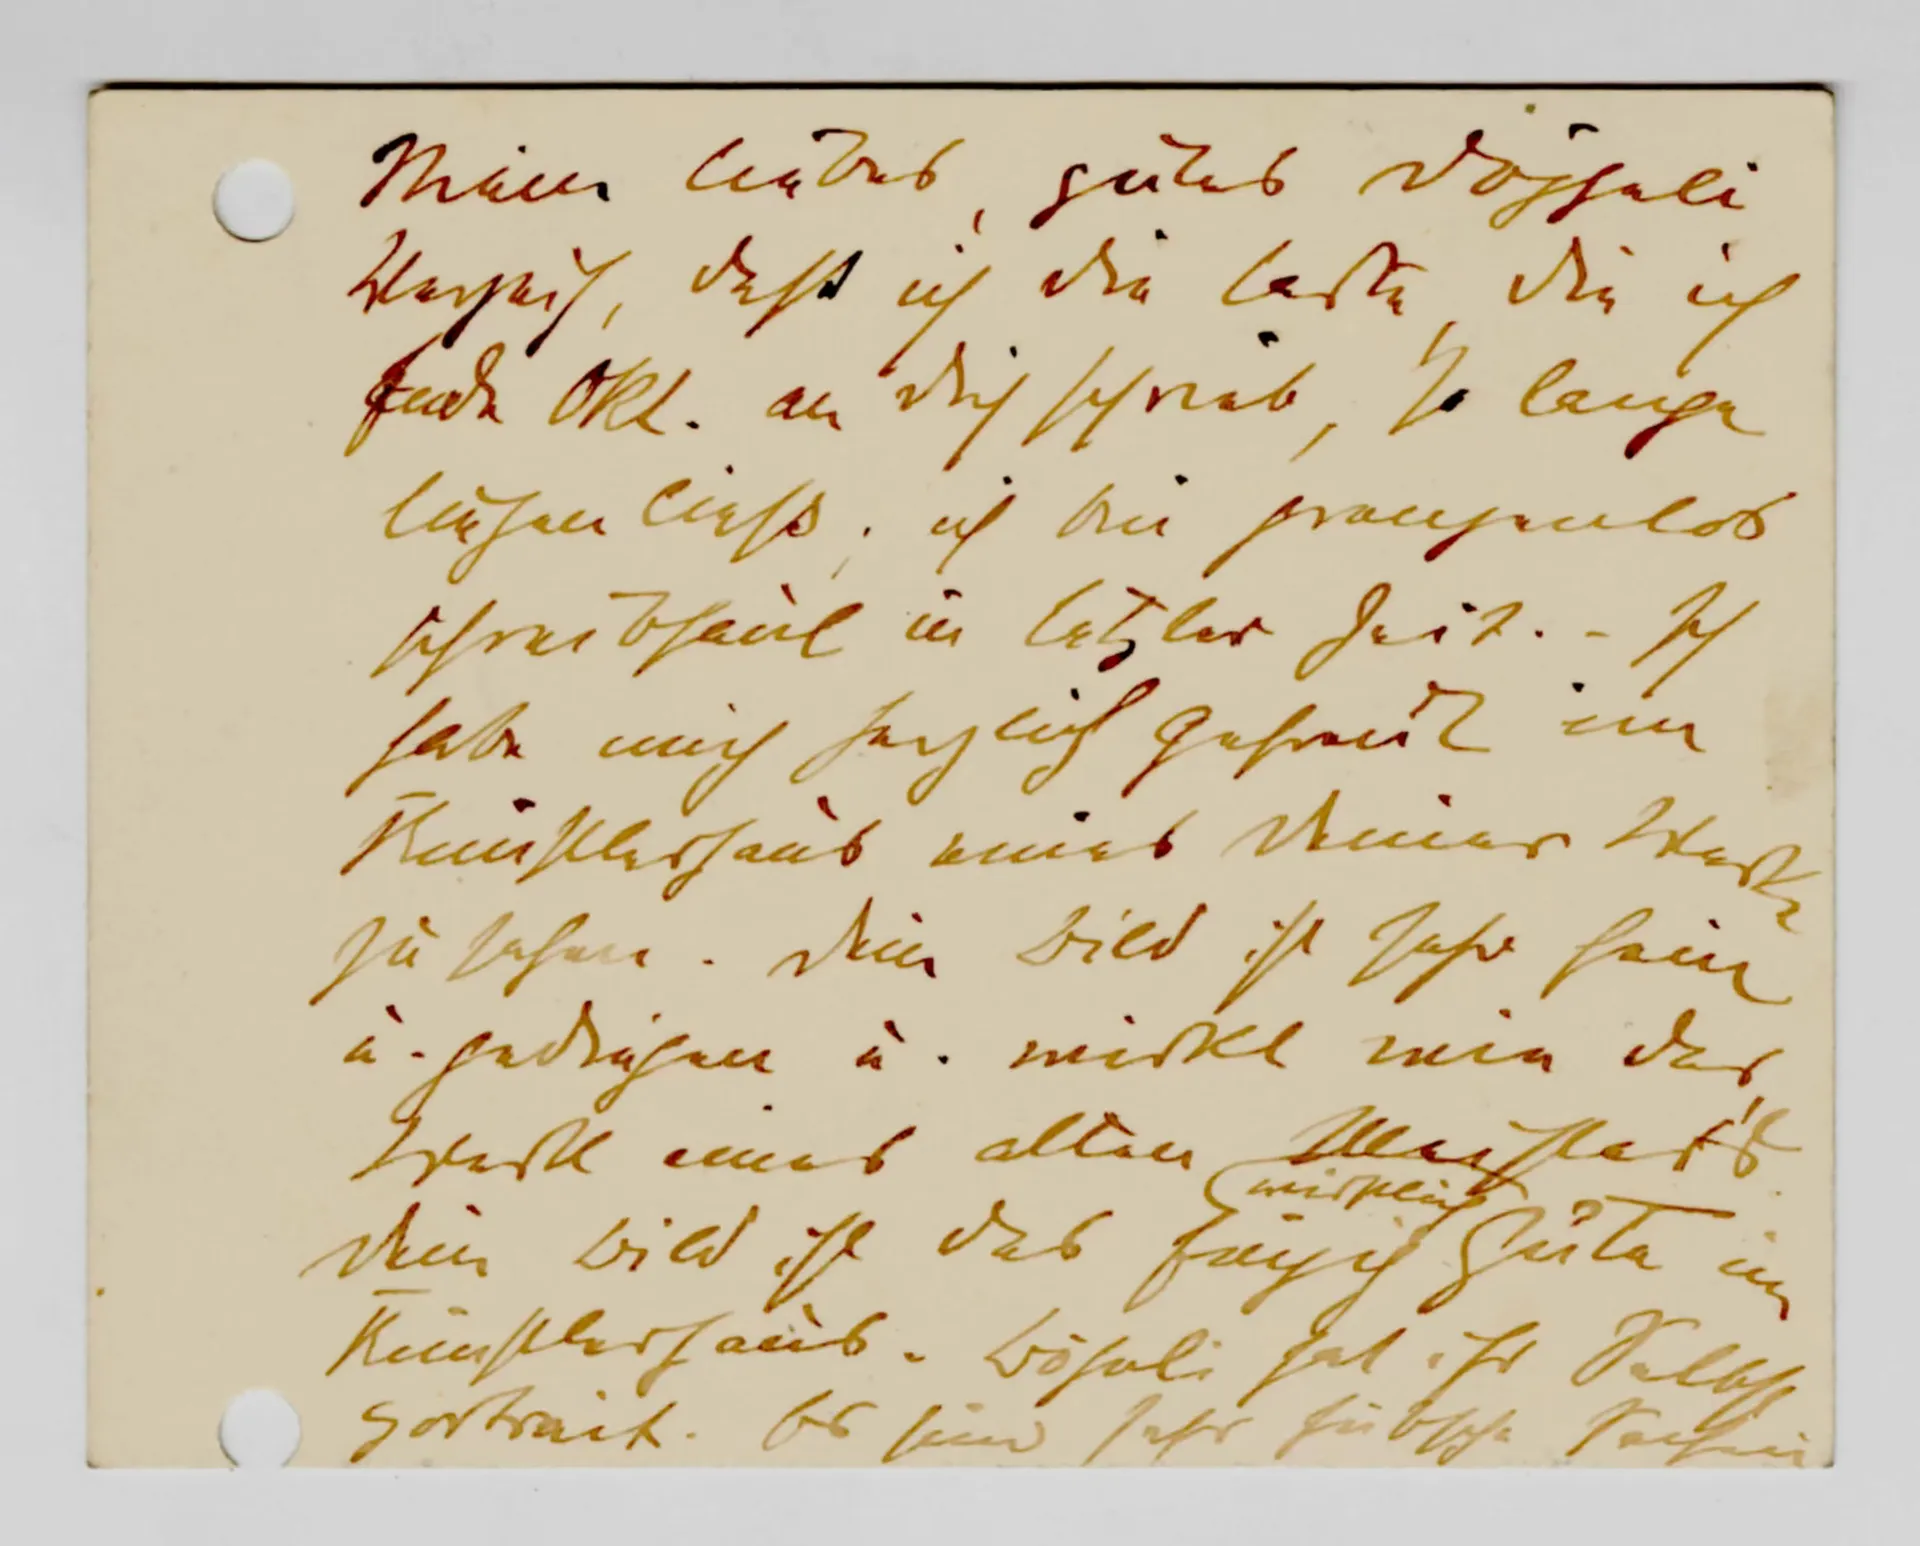 Mein liebes, gutes Döggeli
Verzeih, dass ich die Karte, die ich
Ende Okt. an dich schrieb, so lange
liegen liess, ich bin grenzenlos
schreibfaul in letzter Zeit. - Ich
habe mich herzlich gefreut im
Künstlerhaus eines deiner Werke
zu sehen. Dein Bild ist sehr fein
u. gediegen u. wirkt wie das
Werk eines alten Meisters.
Dein Bild ist das einzig (wirklich) Gute im
Künstlerhaus. hat ihr Selbst
portrait. Es sind sehr hübsche Sachen